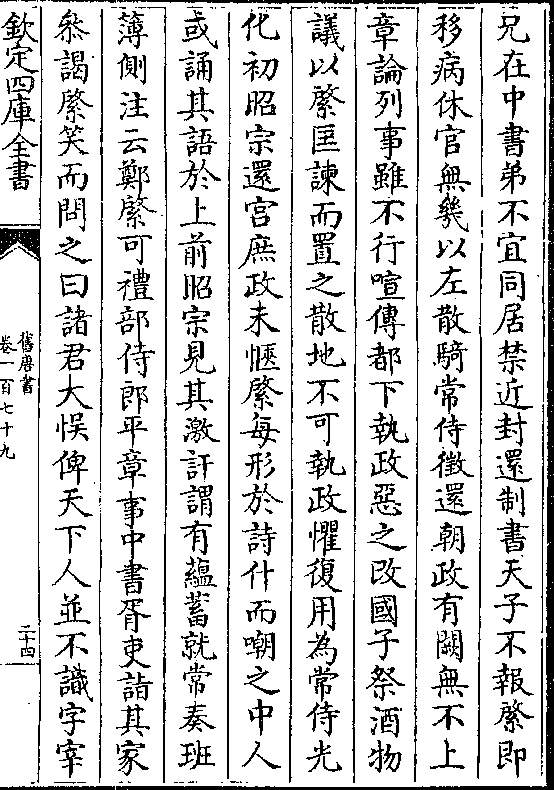 兄在中書弟不宜同居禁近封還制書天子不報綮即
移病休官無幾以左散騎常侍徵還朝政有闕無不上
章論列事雖不行喧傳都下執政惡之改國子祭酒物
議以綮匡諫而置之散地不可執政懼復用為常侍光
化初昭宗還宮庶政未愜綮每形於詩什而嘲之中人
或誦其語於上前昭宗見其激訐謂有蘊蓄就常奏班
薄側注云鄭綮可禮部侍郎平章事中書胥吏詣其家
叅謁綮笑而問之曰諸君大悞俾天下人並不識字宰
欽定四庫全書
舊唐書
卷一百七十九
二十四